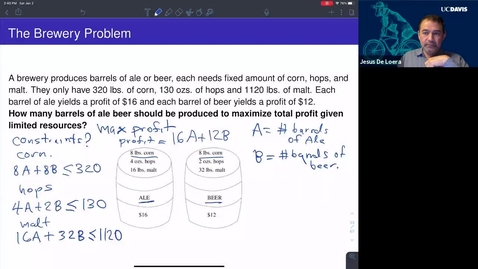 3:40 PM Sat Jan 2
The Brewery Problem
UCDAVIS
Jesus De Loera
A brewery produces barrels of ale or beer, each needs fixed amount of corn, hops, and
malt. They only have 320 lbs. of corn, 130 ozs. of hops and 1120 lbs. of malt. Each
barrel of ale yields a profit of $16 and each barrel of beer yields a profit of $12.
How many barrels of ale beer should be produced to maximize total profit given
limited resources?
max profit
profit = 16A+12B
A = # barrels
of Ale
B = # barrels of
beer.
constraints?
corn.
8A+8B ≤ 320
hops
4A+2B ≤ 130
malt
16A + 32B ≤ 1120
8 lbs. corn
4 ozs. hops
16 lbs. malt
ALE
$16
8 lbs. corn
2 ozs. hops
32 lbs. malt
BEER
$12